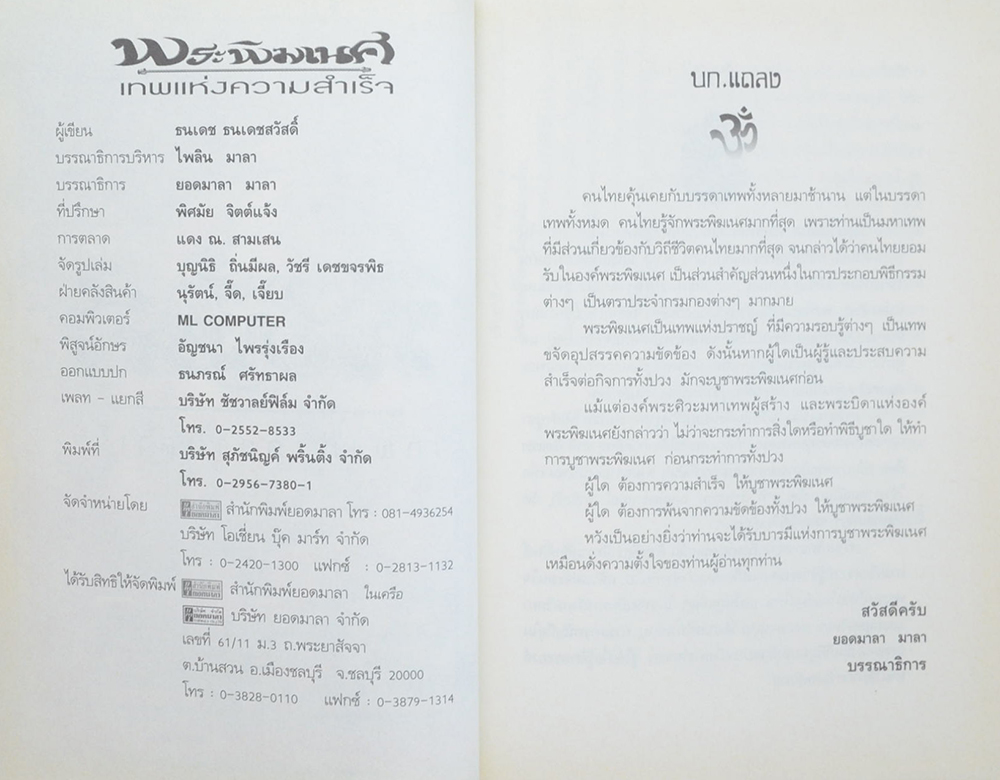 พระพิฆเนศ
เทพแห่งความสำเร็จ
ผู้เขียน ธนเดช ธนเดชสวัสดิ์
บรรณาธิการบริหาร ไพลิน มาลา
บรรณาธิการ ยอดมาลา มาลา
ที่ปรึกษา พิศมัย จิตต์แจ้ง
การตลาด แดง ณ. สามเสน
จัดรูปเล่ม บุญนิธิ ถิ่นมีผล, วัชรี เดชขจรพิธ
ฝ่ายคลังสินค้า นุรัตน์, จี๊ด, เจี๊ยบ
คอมพิวเตอร์ ML COMPUTER
พิสูจน์อักษร อัญชนา ไพรรุ่งเรือง
ออกแบบปก ธนภรณ์ ศรัทธาผล
เพลท - แยกสี บริษัท ชัชวาลย์ฟิล์ม จำกัด
โทร. 0-2552-8533
พิมพ์ที่ บริษัท สุภัชนิญค์ พริ้นติ้ง จำกัด
โทร. 0-2956-7380-1
จัดจำหน่ายโดย สำนักพิมพ์ยอดมาลา โทร : 081-4936254
บริษัท โอเชี่ยน บุ๊ค มาร์ท จำกัด
โทร : 0-2420-1300 แฟกซ์ : 0-2813-1132
ได้รับสิทธิให้จัดพิมพ์ สำนักพิมพ์ยอดมาลา ในเครือ
บริษัท ยอดมาลา จำกัด
เลขที่ 61/11 ม.3 ถ.พระยาสัจจา
ต.บ้านสวน อ.เมืองชลบุรี จ.ชลบุรี 20000
โทร : 0-3828-0110 แฟกซ์ : 0-3879-1314
บก.แถลง
คนไทยคุ้นเคยกับบรรดาเทพทั้งหลายมาช้านาน แต่ในบรรดา
เทพทั้งหมด คนไทยรู้จักพระพิฆเนศมากที่สุด เพราะท่านเป็นมหาเทพ
ที่มีส่วนเกี่ยวข้องกับวิถีชีวิตคนไทยมากที่สุด จนกล่าวได้ว่าคนไทยยอม
รับในองค์พระพิฆเนศ เป็นส่วนสำคัญส่วนหนึ่งในการประกอบพิธีกรรม
ต่างๆ เป็นตราประจำกรมกองต่างๆ มากมาย
พระพิฆเนศเป็นเทพแห่งปราชญ์ ที่มีความรอบรู้ต่างๆ เป็นเทพ
ขจัดอุปสรรคความขัดข้อง ดังนั้นหากผู้ใดเป็นผู้รู้และประสบความ
สำเร็จต่อกิจการทั้งปวง มักจะบูชาพระพิฆเนศก่อน
แม้แต่องค์พระศิวะมหาเทพผู้สร้าง และพระบิดาแห่งองค์
พระพิฆเนศยังกล่าวว่า ไม่ว่าจะกระทำการสิ่งใดหรือทำพิธีบูชาใด ให้ทำ
การบูชาพระพิฆเนศ ก่อนกระทำการทั้งปวง
ผู้ใด ต้องการความสำเร็จ ให้บูชาพระพิฆเนศ
ผู้ใด ต้องการพ้นจากความขัดข้องทั้งปวง ให้บูชาพระพิฆเนศ
หวังเป็นอย่างยิ่งว่าท่านจะได้รับบารมีแห่งการบูชาพระพิฆเนศ
เหมือนดั่งความตั้งใจของท่านผู้อ่านทุกท่าน
สวัสดีครับ
ยอดมาลา มาลา
บรรณาธิการ